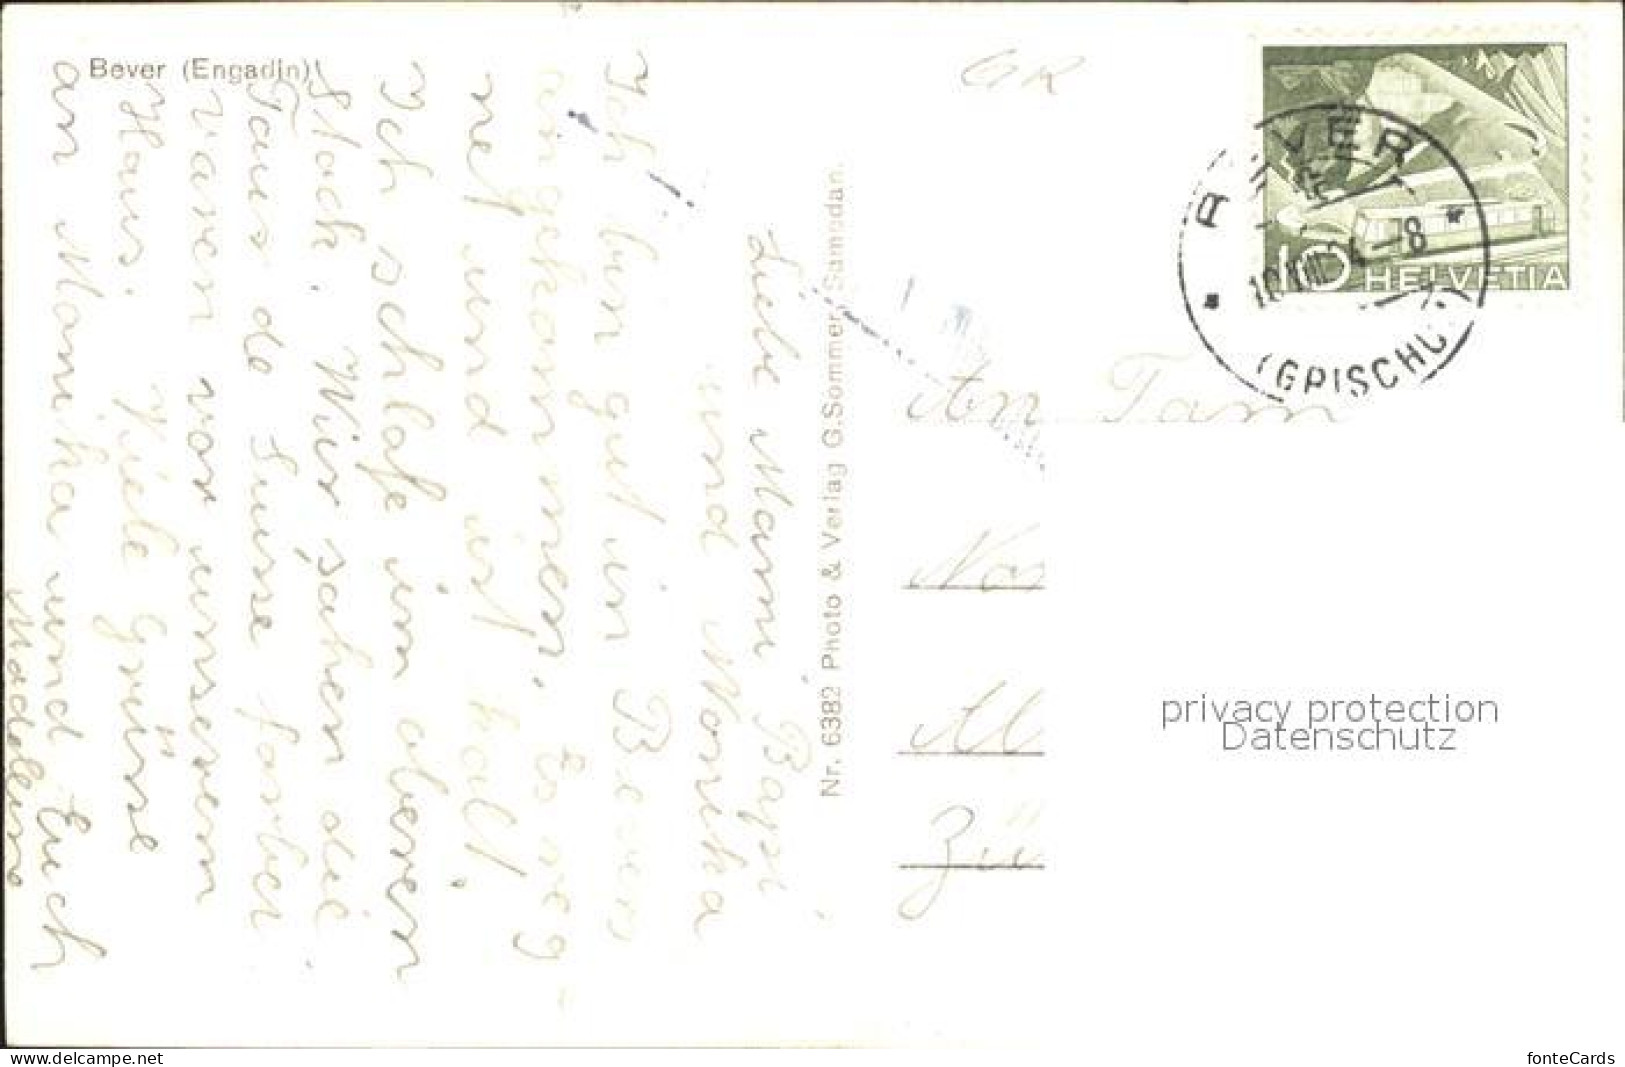 Bever (Engadin)
GR
HELVETIA
10
BEVER
(GRISCHUN)
Nr. 6382 Photo & Verlag G.Sommer, Samedan.
Liebe Mami Papi
und Monika
Ich bin gut in Bever
angekommen, Es reg-
net und ist kalt.
Ich schlafe im oberen
Stock. Wir sahen die
Tour de Suisse farbei
varen vor unserem
Haus. Viele Grüsse
an Monika und Euch
Madeleine
An Fam
Zü
privacy protection
Datenschutz
www.delcampe.net
fonteCards